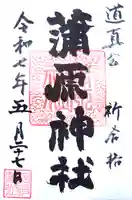 道真公
祈石拾
蒲原神社
令和七年五月二十七日